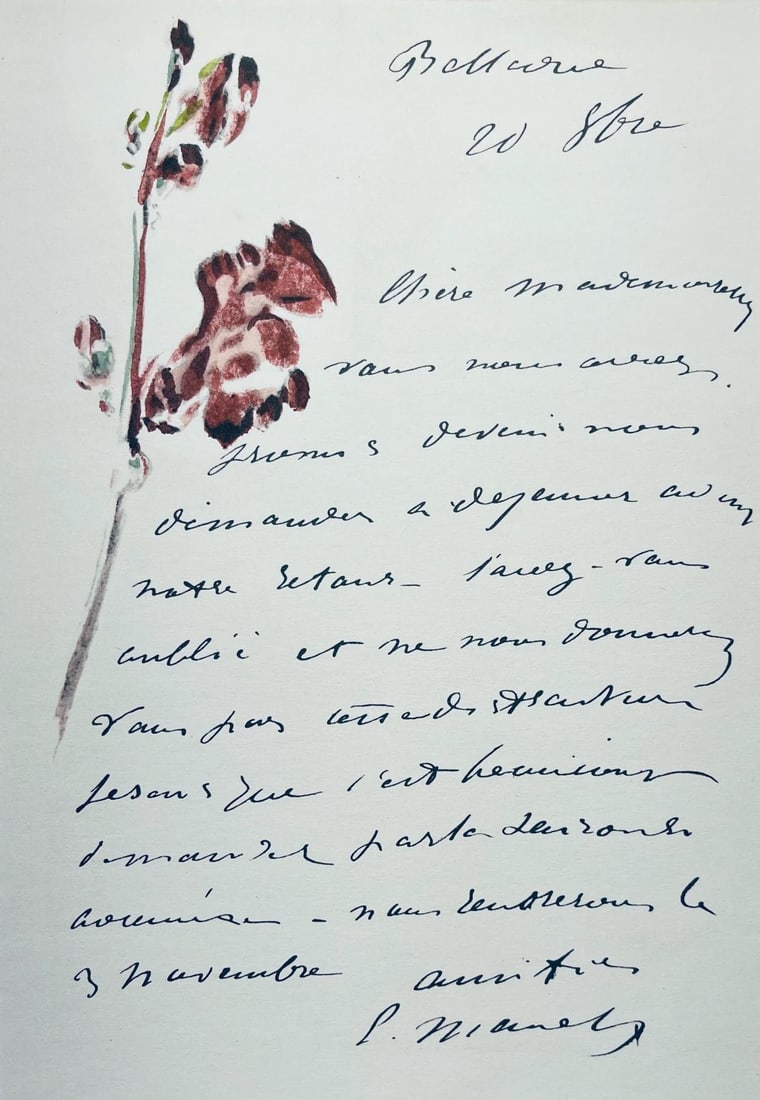 Bellevue
20 8bre
Chère mademoiselle
vous nous aviez
promis de venir nous
demander a dejeuner avant
notre retour - l'avez-vous
oublié et ne nous donnerez
vous pas cette distraction
je sais que c'est beaucoup
demander par la
- nous rentrerons le
3 novembre amitiés
E. Manet